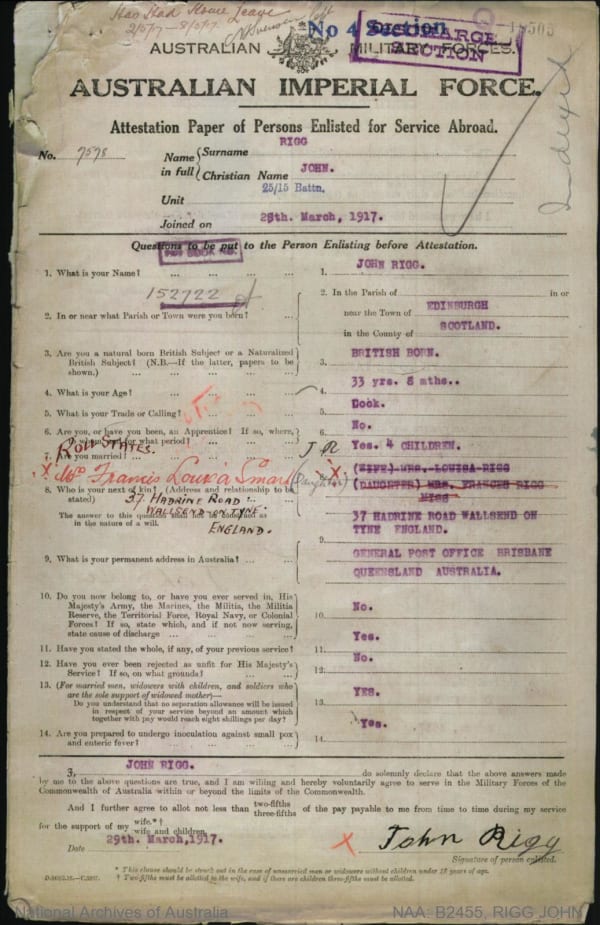 Has Had Home Leave
2/5/17 - 8/5/17
No 4 Section
DISCHARGE
SECTION
AUSTRALIAN MILITARY FORCES.
AUSTRALIAN IMPERIAL FORCE.
Attestation Paper of Persons Enlisted for Service Abroad.
No. 7578
Name in full { Surname RIGG
Christian Name JOHN.
Unit 25/15 Battn.
Joined on 28th. March, 1917.
Questions to be put to the Person Enlisting before Attestation.
1. What is your Name? ... ... ... ... 1. JOHN RIGG.
152722
2. In or near what Parish or Town were you born? ... 2. In the Parish of in or
near the Town of EDINBURGH
in the County of SCOTLAND.
3. Are you a natural born British Subject or a Naturalized
British Subject? (N.B.—If the latter, papers to be
shown.) ... ... ... ... 3. BRITISH BORN.
4. What is your Age? ... ... ... 4. 33 yrs. 8 mths..
5. What is your Trade or Calling? ... ... 5. Cook.
6. Are you, or have you been, an Apprentice? If so, where,
to whom, and for what period? ... ... 6. No.
7. Are you married? ... ... J R Yes. 4 CHILDREN.
ROLL STATES.
X Mrs Francis Louisa Smart (Daughter) X
(WIFE) MRS. LOUISA RIGG
(DAUGHTER) MRS. FRANCES RIGG
RIGG
8. Who is your next of kin? (Address and relationship to be
stated)
37 HADRINE ROAD
WALLSEND-ON TYNE
ENGLAND.
The answer to this question shall not be construed as
in the nature of a will.
37 HADRINE ROAD WALLSEND ON
TYNE ENGLAND.
9. What is your permanent address in Australia? ... 9. GENERAL POST OFFICE BRISBANE
QUEENSLAND AUSTRALIA.
10. Do you now belong to, or have you ever served in, His
Majesty's Army, the Marines, the Militia, the Militia
Reserve, the Territorial Force, Royal Navy, or Colonial
Forces? If so, state which, and if not now serving,
state cause of discharge ... ... ... 10. No.
11. Have you stated the whole, if any, of your previous service? 11. Yes.
12. Have you ever been rejected as unfit for His Majesty's
Service? If so, on what grounds? ... ... 12. No.
13. (For married men, widowers with children, and soldiers who
are the sole support of widowed mother)—
Do you understand that no separation allowance will be issued
in respect of your service beyond an amount which
together with pay would reach eight shillings per day? 13. YES.
14. Are you prepared to undergo inoculation against small pox
and enteric fever? ... ... ... 14. Yes.
I, JOHN RIGG. do solemnly declare that the above answers made
by me to the above questions are true, and I am willing and hereby voluntarily agree to serve in the Military Forces of the
Commonwealth of Australia within or beyond the limits of the Commonwealth.
And I further agree to allot not less than two-fifths three-fifths of the pay payable to me from time to time during my service
for the support of my wife.*† wife and children.
Date 29th. March, 1917. X John Rigg
Signature of person enlisted.
* This clause should be struck out in the case of unmarried men or widowers without children under 18 years of age.
† Two-fifths must be allotted to the wife, and if there are children three-fifths must be allotted.
National Archives of Australia NAA: B2455, RIGG JOHN